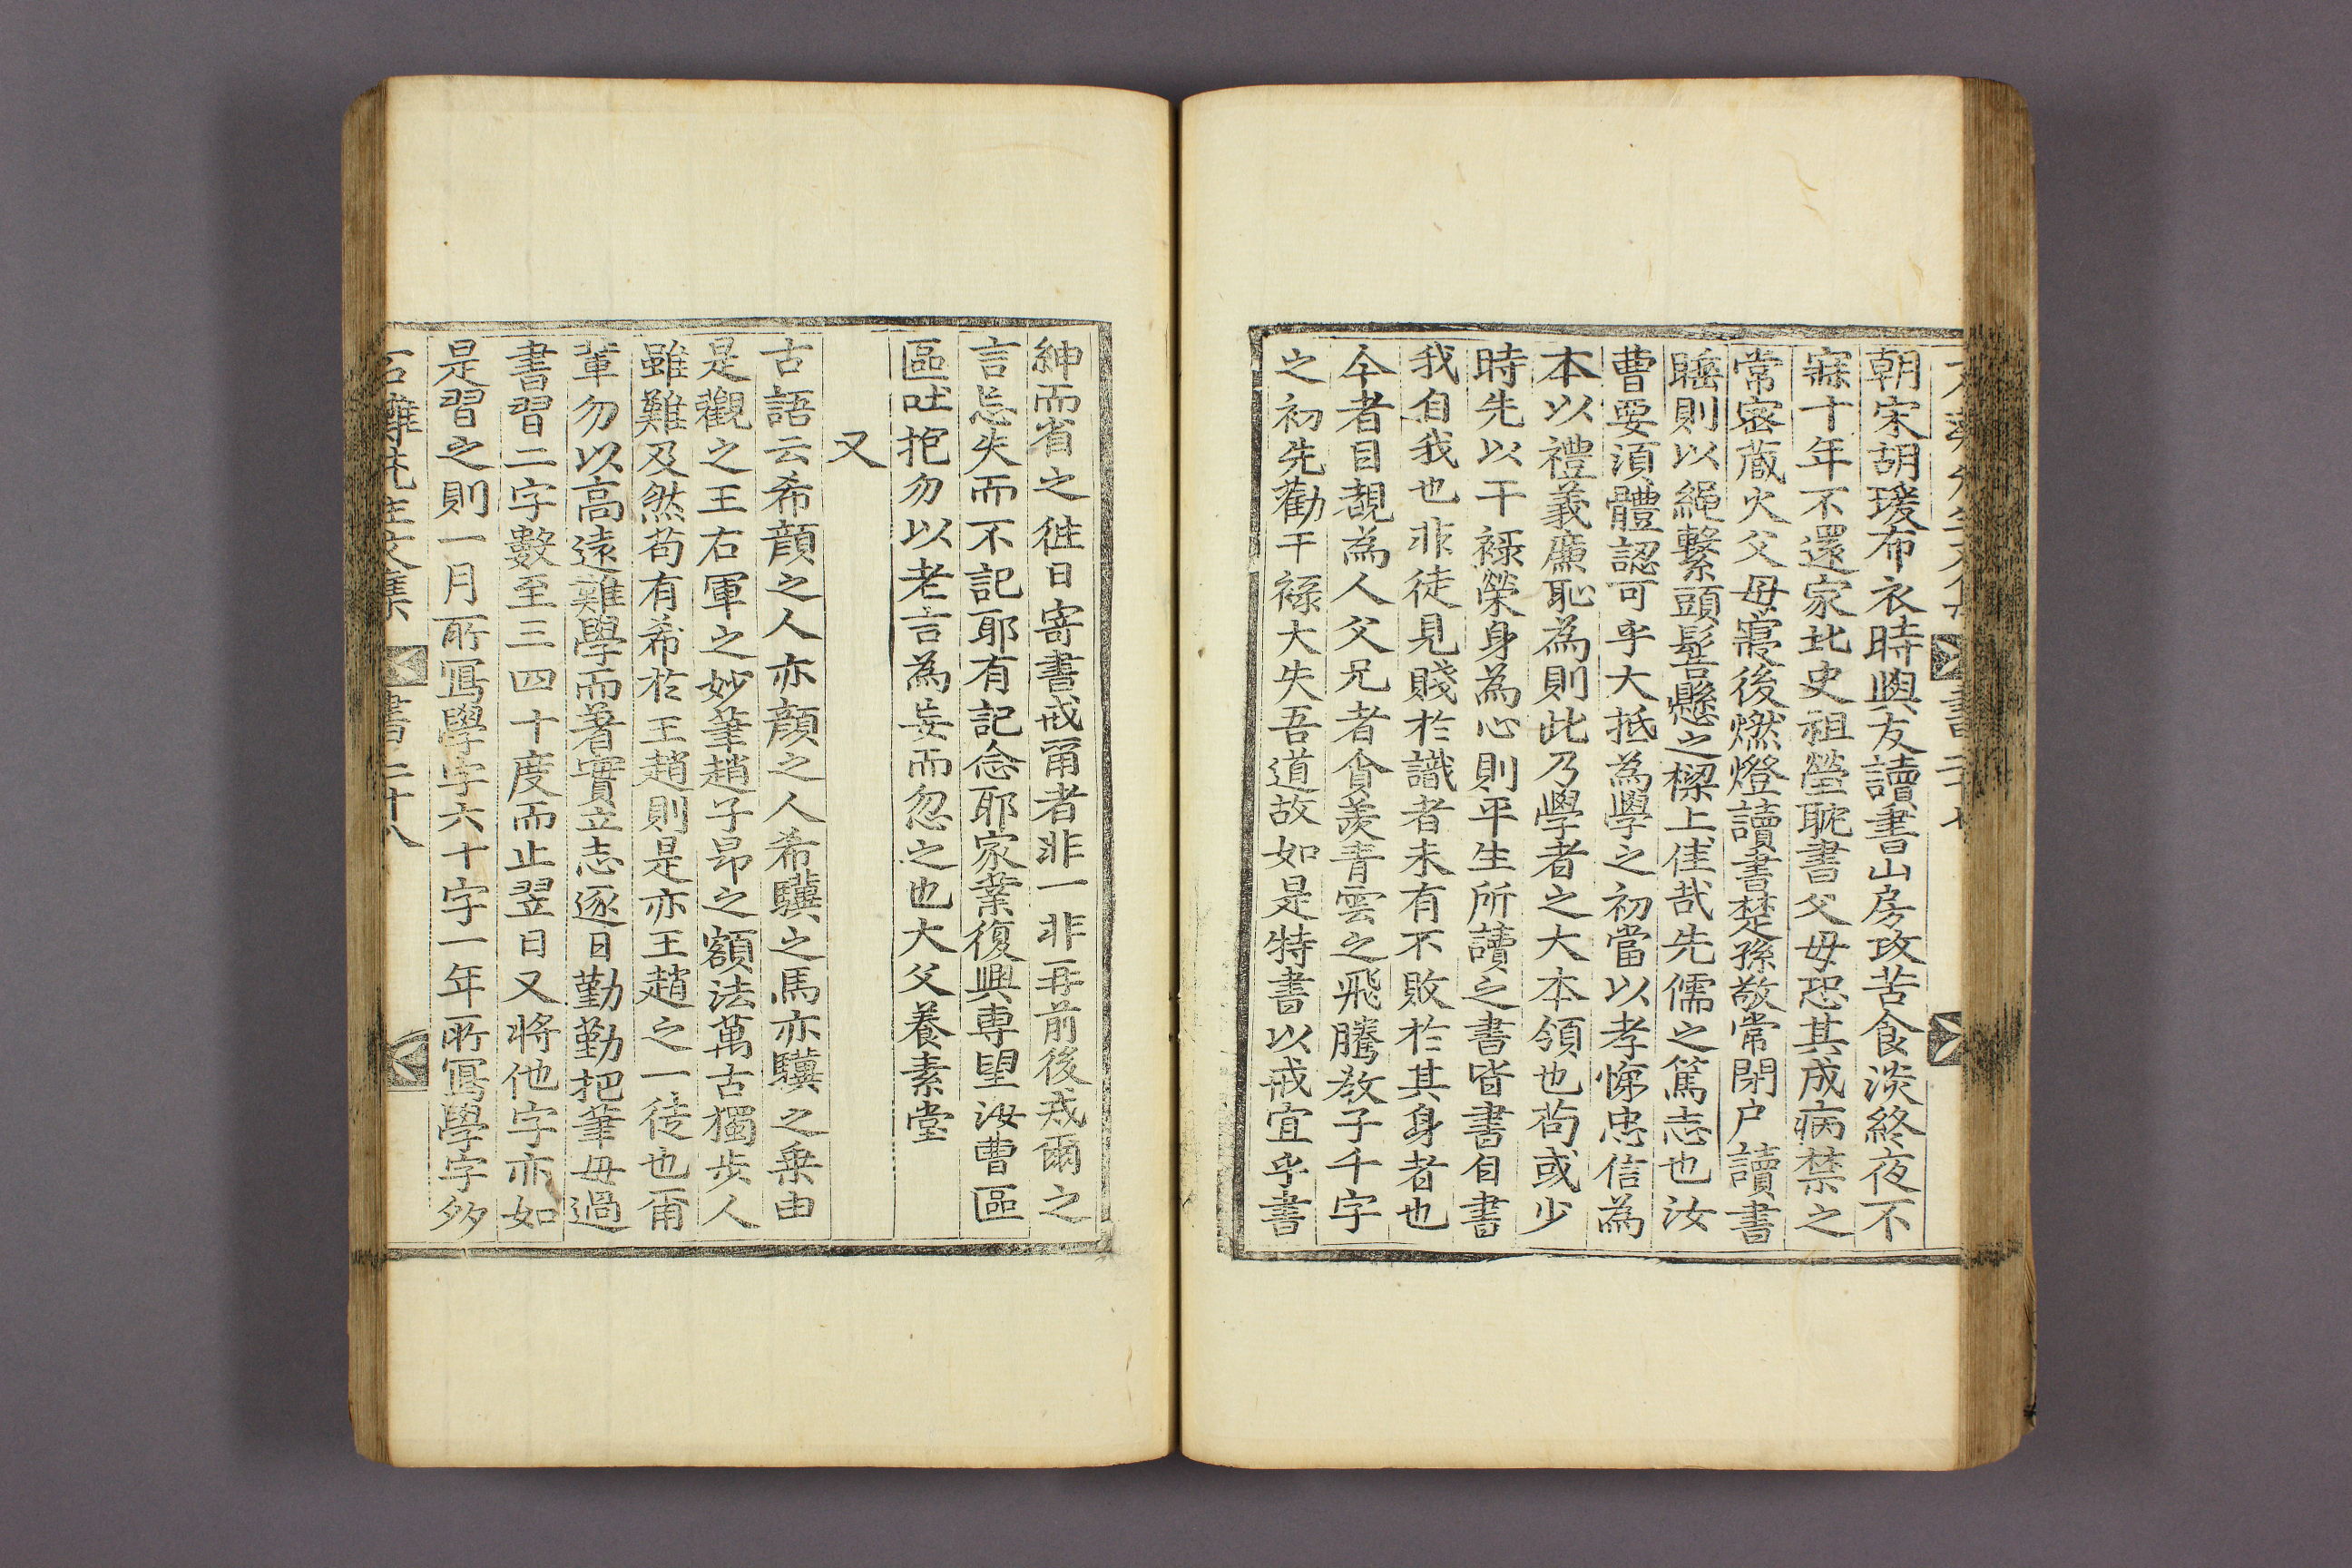 書二十七
朝宋胡瑗布衣時與友讀書山房攻苦食淡終夜不
寐十年不還家北史祖瑩耽書父母恐其成病禁之
常密藏火父母寢後燃燈讀書楚孫敬常閉户讀書
睡則以繩繫頭髻懸之樑上佳哉先儒之篤志也汝
曹要湏體認可乎大抵為學之初當以孝悌忠信為
本以禮義廉恥為則此乃學者之大本領也苟或少
時先以干祿榮身為心則平生所讀之書皆書自書
我自我也非徒見賤於識者未有不敗於其身者也
今者目覩為人父兄者貪羨青雲之飛騰教子千字
之初先勸干祿大失吾道故如是特書以戒宜乎書
紳而省之徃日寄書戒甭者非一非再前後戒爾之
言忘失而不記耶有記念耶家業復興專望汝曹區
區吐抱勿以老言為妄而忽之也大父養素堂
又
古語云希顔之人亦顔之人希驥之馬亦驥之乗由
是觀之王右軍之妙筆趙子昂之額法萬古獨步人
雖難及然苟有希於王趙則是亦王趙之一徒也甭
輩勿以高遠難學而著實立志逐日勤勤把筆毋過
書習二字數至三四十度而止翌日又將他字亦如
是習之則一月所寫學字六十字一年所寫學字多
先生文集 書二十八